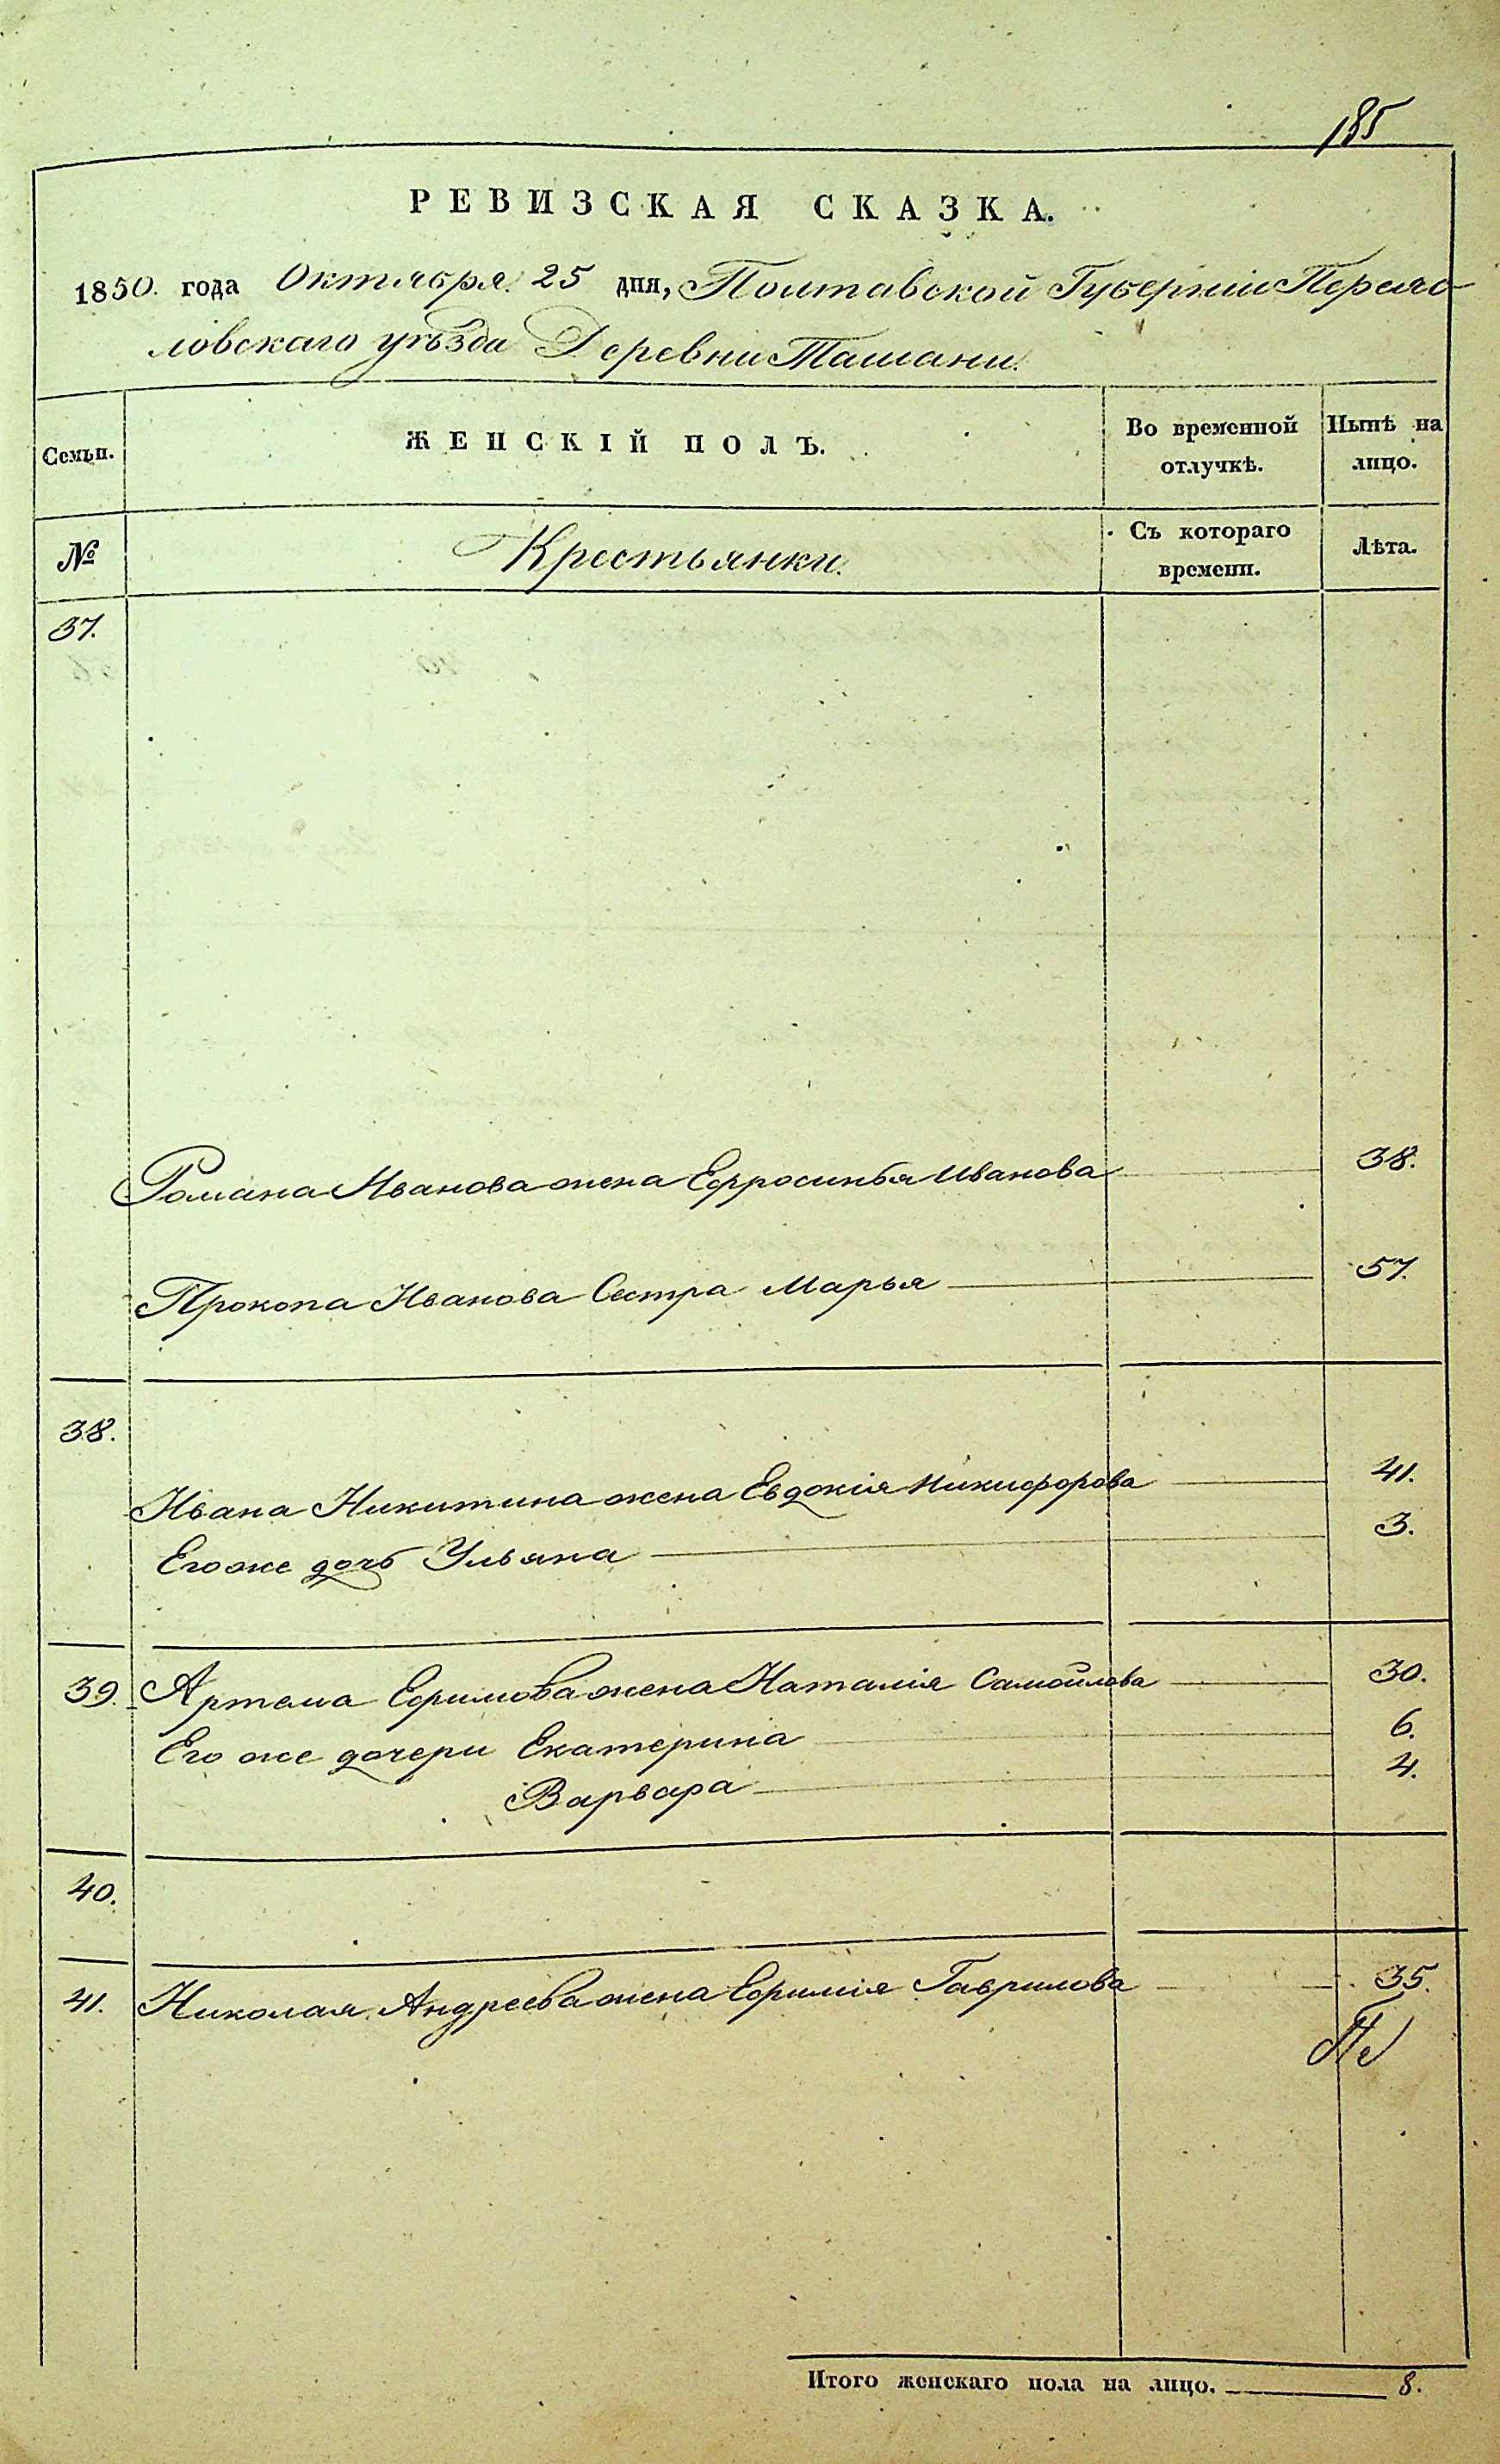 185
РЕВИЗСКАЯ СКАЗКА.
1850. года Октября 25 дня, Полтавской Губерніи Переяс-
ловскаго уѣзда Деревни Ташани.
Семьи.
ЖЕНСКІЙ ПОЛЪ.
Во временной отлучкѣ.
Нынѣ на лицо.
№
Крестьянки.
Съ котораго времени.
Лѣта.
37.
Романа Иванова жена Ефросинья Иванова 38.
Прокопа Иванова Сестра Марья 57.
38.
Ивана Никитина жена Евдокія Никифорова 41.
Его же дочь Ульяна 3.
39. Артема Ефимова жена Наталія Самойлова 30.
Его же дочери Екатерина 6.
Варвара 4.
40.
41. Николая Андреева жена Ефимія Гаврилова 35.
Итого женскаго пола на лицо. 8.